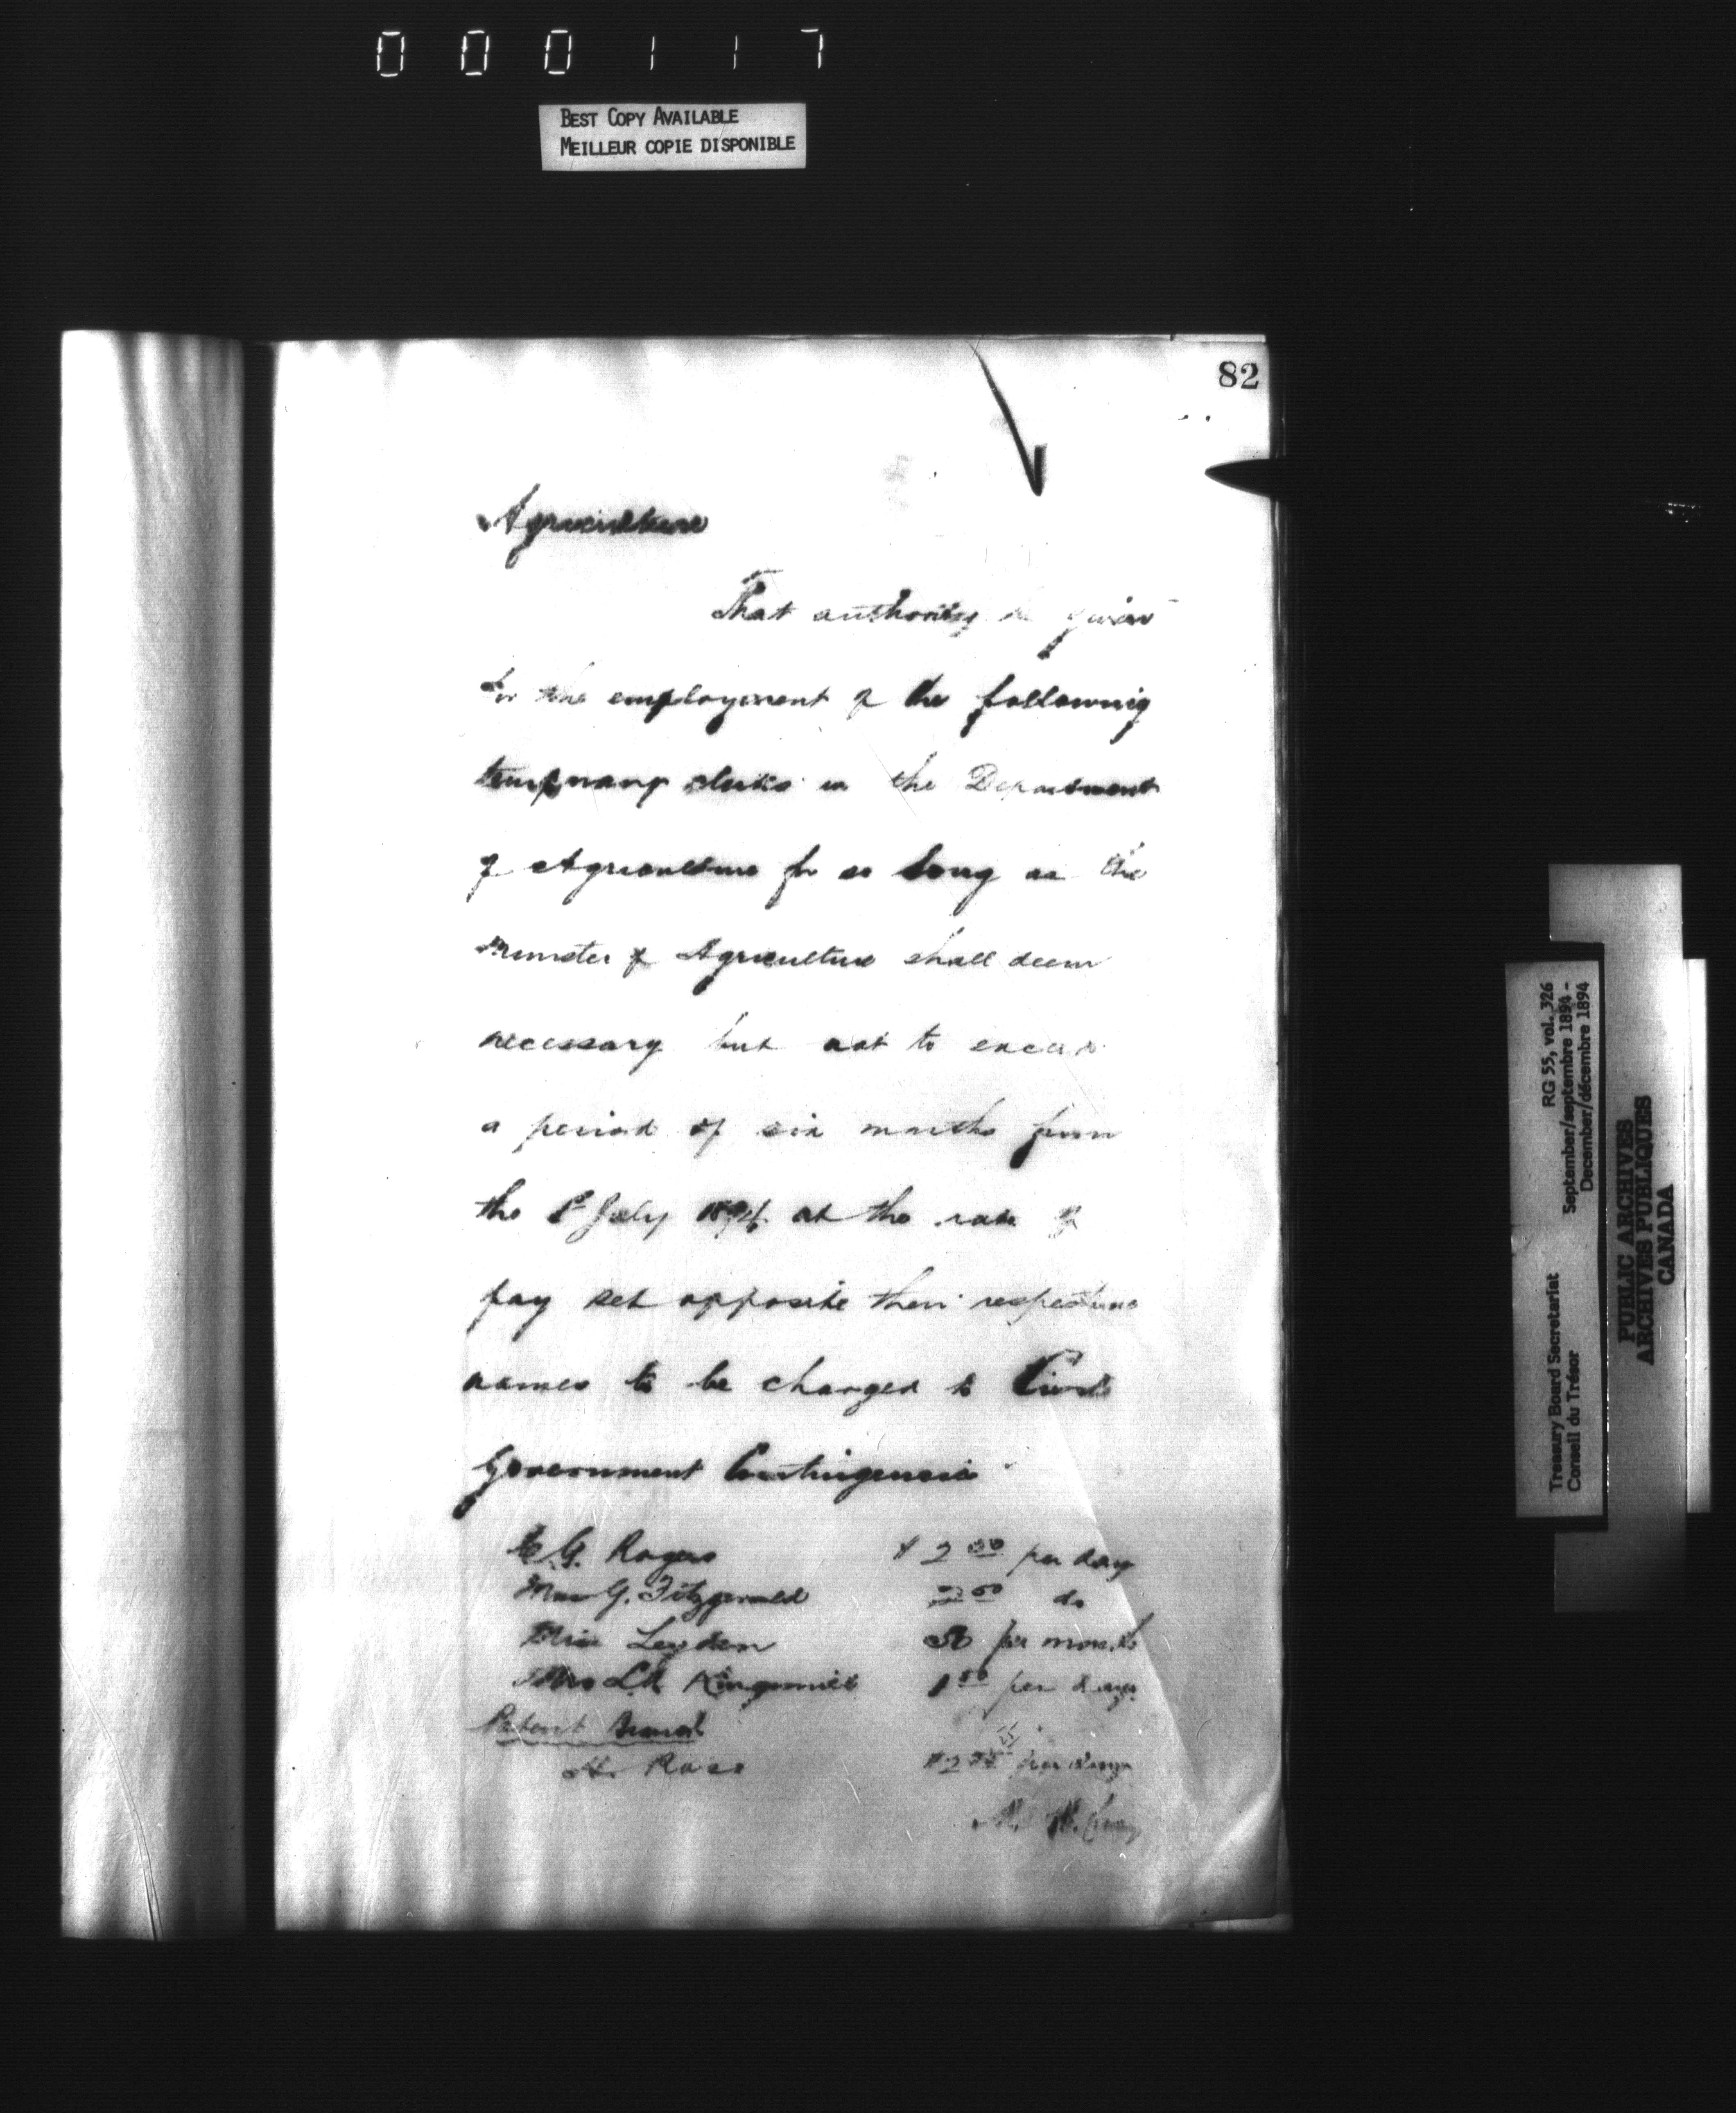 000117
BEST COPY AVAILABLE
MEILLEUR COPIE DISPONIBLE
82
Agriculture
That authority be given
for the employment of the following
temporary clerks in the Department
of Agriculture for so long as the
Minister of Agriculture shall deem
necessary but not to exceed
a period of six months from
the 1st July 1894 at the rate of
pay set opposite their respective
names to be charged to Civil
Government Contingencies
G. Rogers $2 50 per day
G. Fitzgerald do
Miss Leyden per month
Mrs Kingsmill 1 50 per day
Patent Branch
H. Ross $2 per day
Treasury Board Secretariat RG 55, vol. 326
Conseil du Trésor September/septembre 1894 -
December/décembre 1894
PUBLIC ARCHIVES
ARCHIVES PUBLIQUES
CANADA